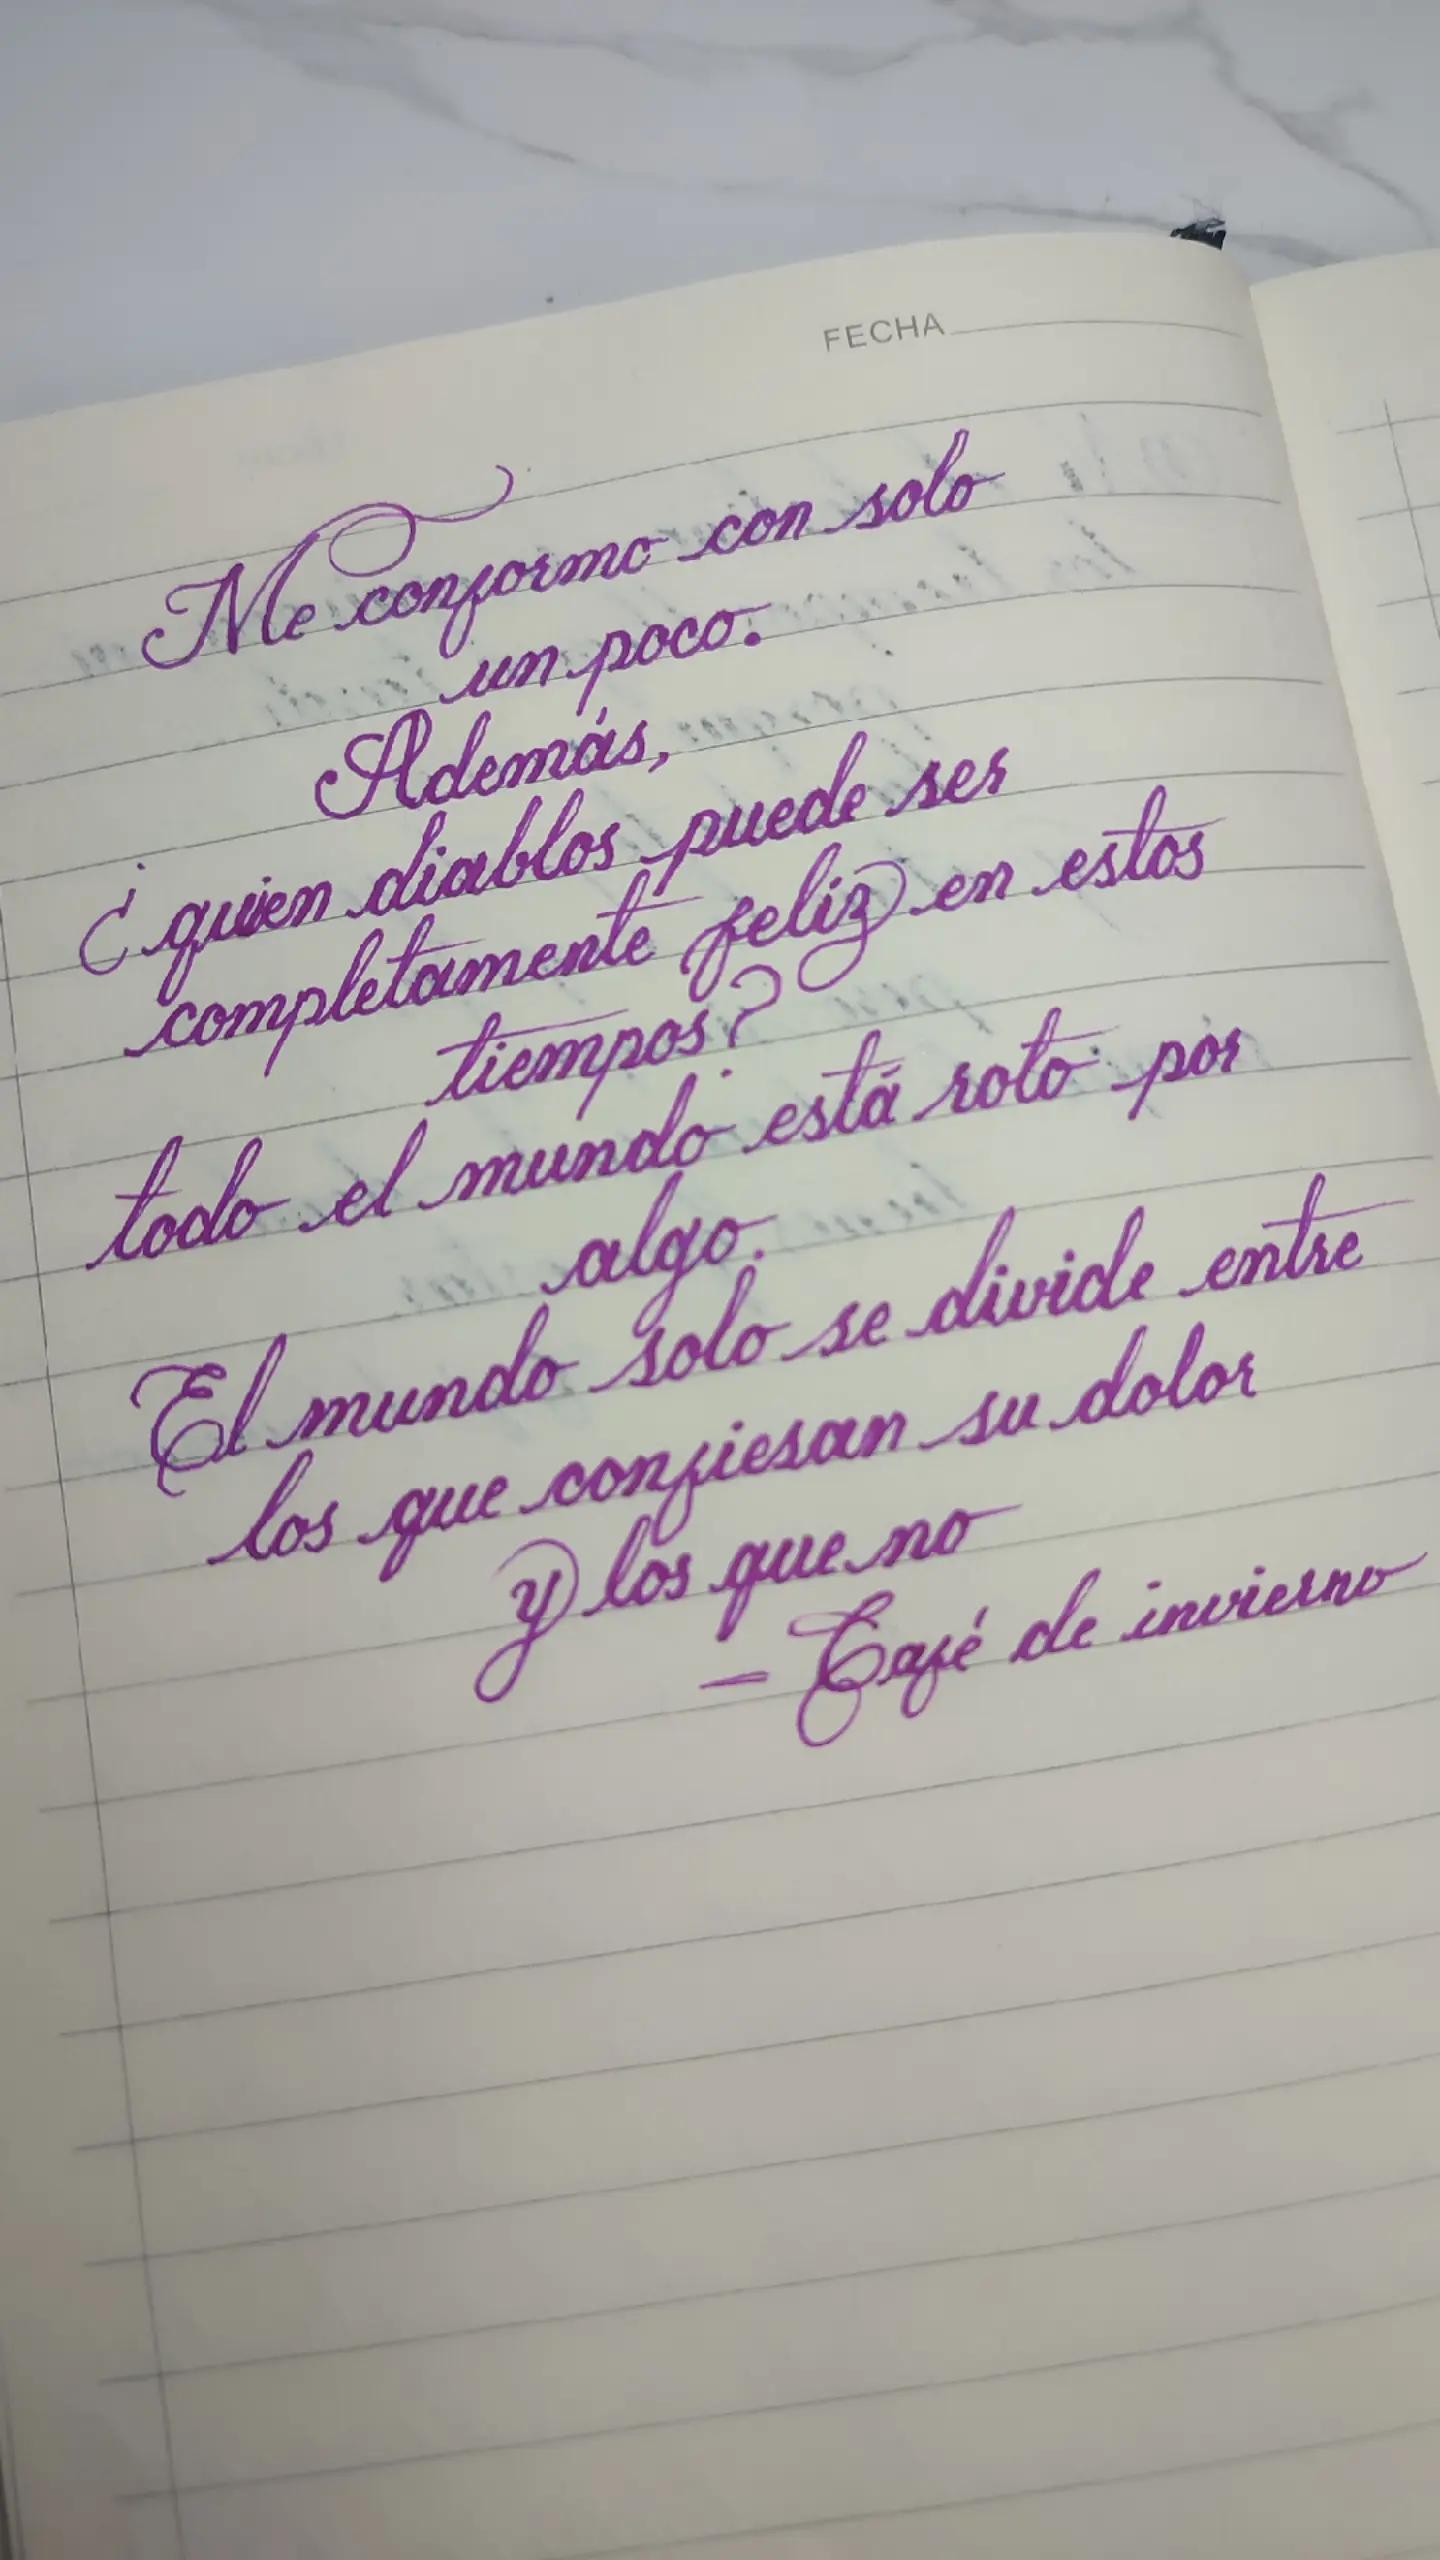 FECHA
Me conformo con solo
un poco.
Además,
¿quien diablos puede ser
completamente feliz en estos
tiempos?
todo el mundo está roto por
algo.
El mundo solo se divide entre
los que confiesan su dolor
y los que no
- Café de invierno